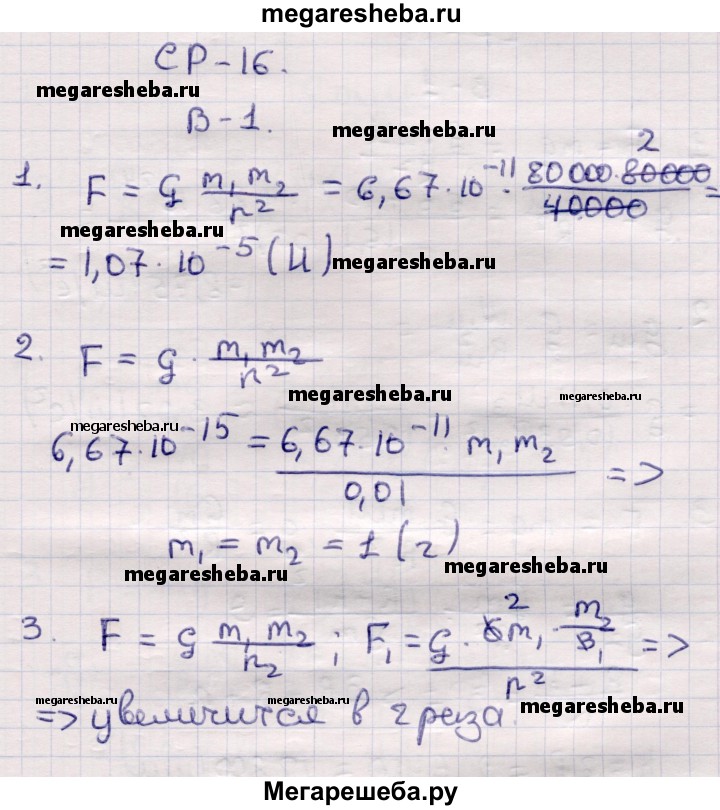 megaresheba.ru
СР-16.
megaresheba.ru
В-1.
megaresheba.ru
1. F = G m₁ m₂ / r² = 6,67·10⁻¹¹ · 80000·80000 2 / 40000 =
megaresheba.ru
= 1,07·10⁻⁵ (Н)
megaresheba.ru
2. F = G · m₁ m₂ / r²
megaresheba.ru
megaresheba.ru
megaresheba.ru
6,67·10⁻¹⁵ = 6,67·10⁻¹¹ m₁ m₂ / 0,01 =>
m₁ = m₂ = 1 (г)
megaresheba.ru
megaresheba.ru
3. F = G m₁ m₂ / r₂ ; F₁ = G · 6 2 m₁ · m₂ / 3 1 / r² =>
megaresheba.ru
megaresheba.ru
megaresheba.ru
=> увеличится в 2 раза.
Мегарешеба.ру